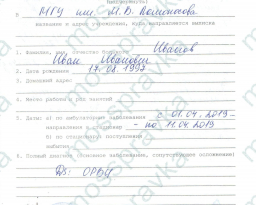 в МГУ им. М.В. Ломоносова
название и адрес учреждения, куда направляется выписка
1. Фамилия, имя, отчество Иванов
Иван Иванович
2. Дата рождения 17.08.1997
3. Домашний адрес
4. Место работы и род занятий
5. Даты: а) по амбулаторным: заболевания с 01.04.2019-
направления в стационар - по 11.04.2019
б) по стационарным: поступления
выбытия
6. Полный диагноз (основное заболевание, сопутствующие осложнения)
Ds: ОРВИ
mosspravka